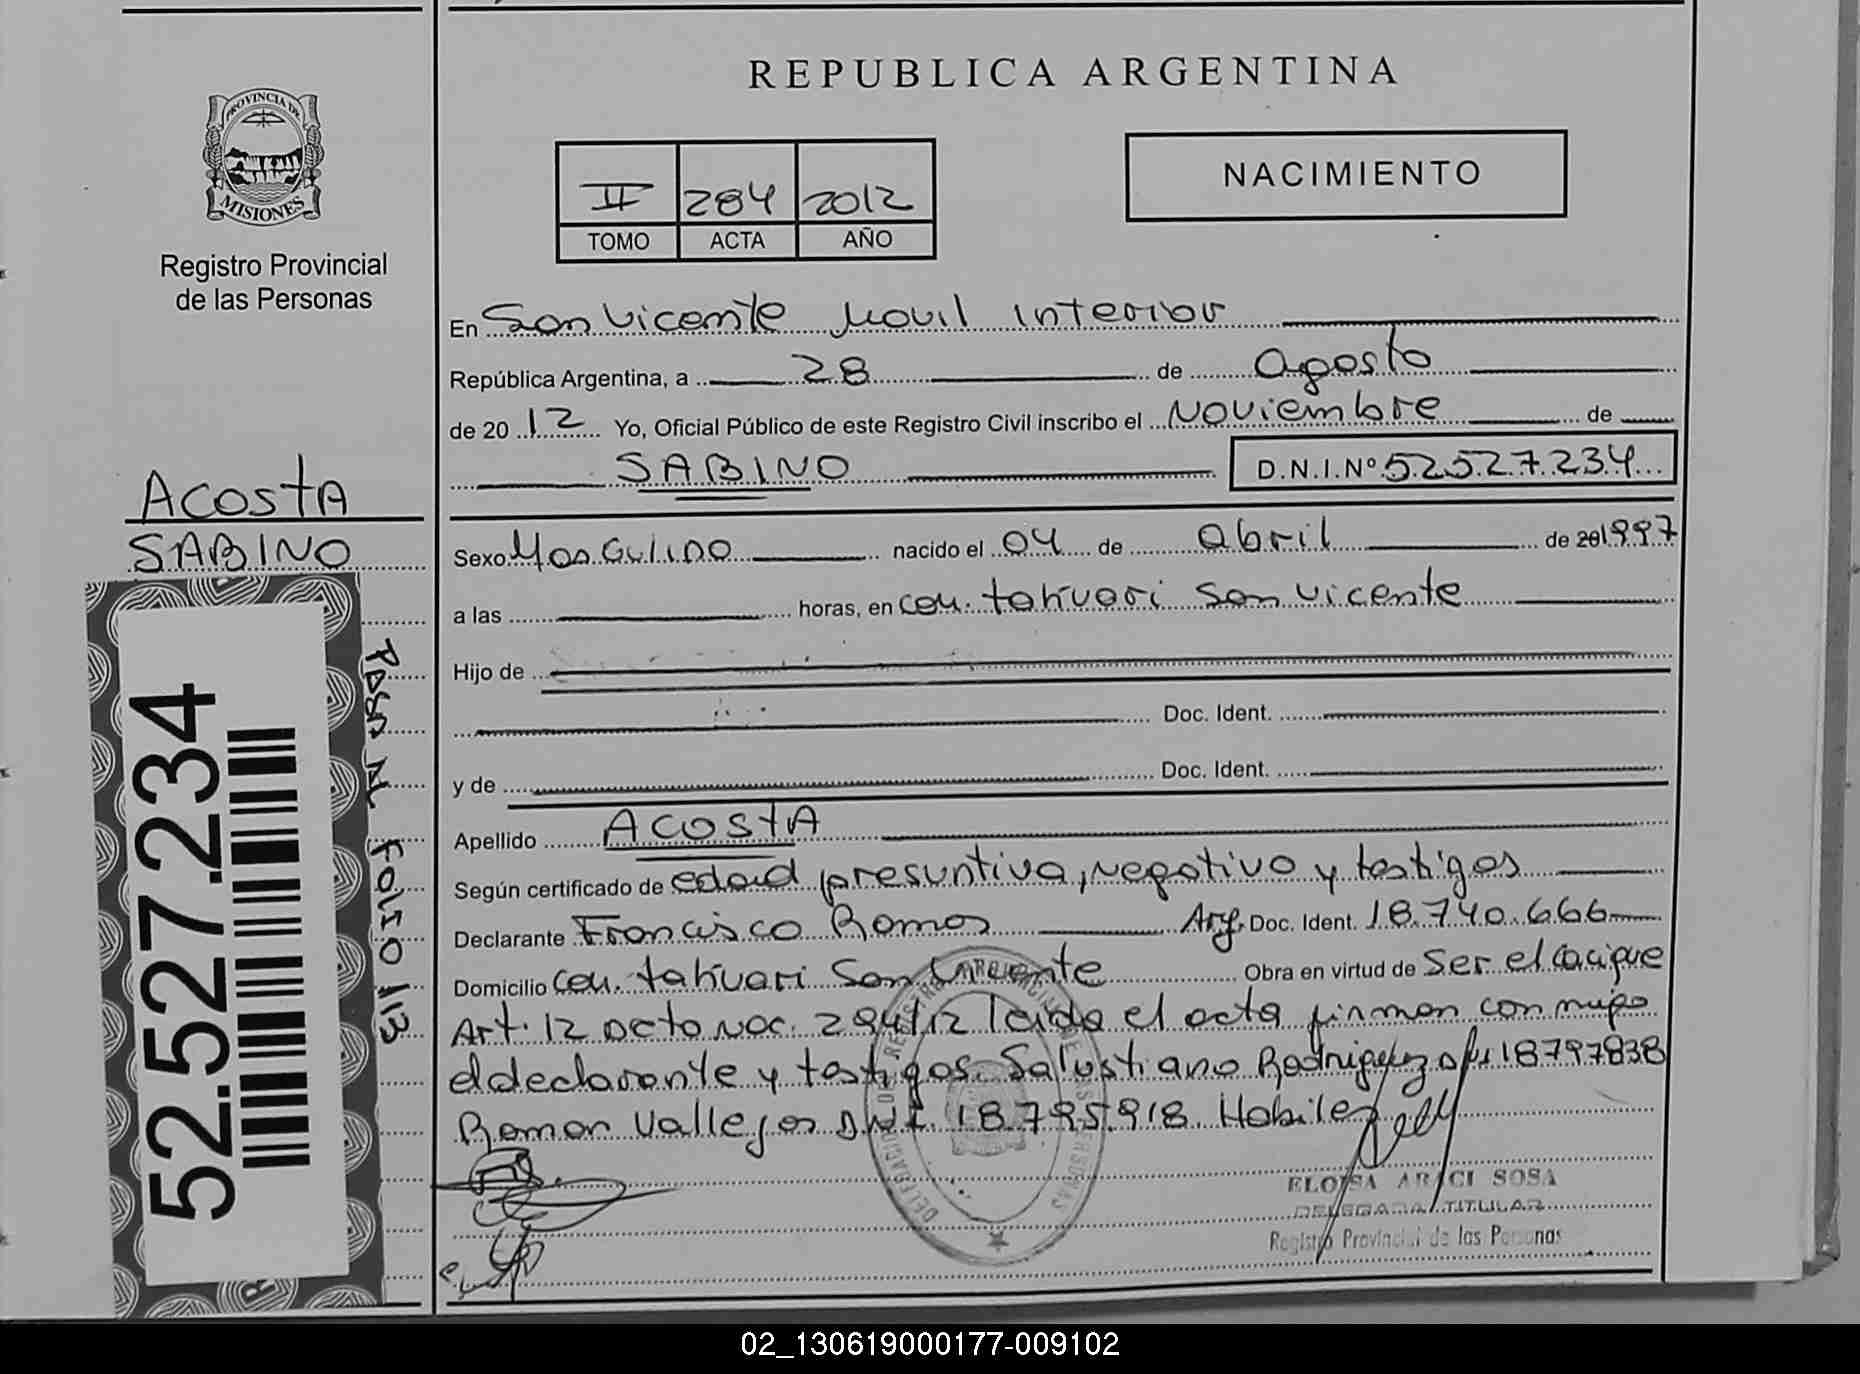 REPUBLICA ARGENTINA
PROVINCIA DE
MISIONES
Registro Provincial
de las Personas
II 284 2012
TOMO ACTA AÑO
NACIMIENTO
En San Vicente Movil Interior
República Argentina, a 28 de agosto
de 2012 Yo, Oficial Público de este Registro Civil inscribo el Noviembre de
SABINO D.N.I.Nº 52.527.234
ACOSTA
SABINO
52.527.234
Pasa al Folio 113
Sexo Masculino nacido el 04 de abril de 201997
a las horas, en com. takuari San Vicente
Hijo de
Doc. Ident.
y de Doc. Ident.
Apellido ACOSTA
Según certificado de edad presuntiva, negativo y testigos
Declarante Francisco Ramos Arg. Doc. Ident. 18.740.666
Domicilio com. takuari San Vicente Obra en virtud de Ser el cacique
Art. 12 294/12 leida el acta firman con migo
el declarante y testigos Salustiano Rodriguez 18797838
Ramon Vallejos DNI. 18.795.918. Habiles
ELOISA ARACI SOSA
DELEGADA TITULAR
Registro Provincial de las Personas
02_130619000177-009102